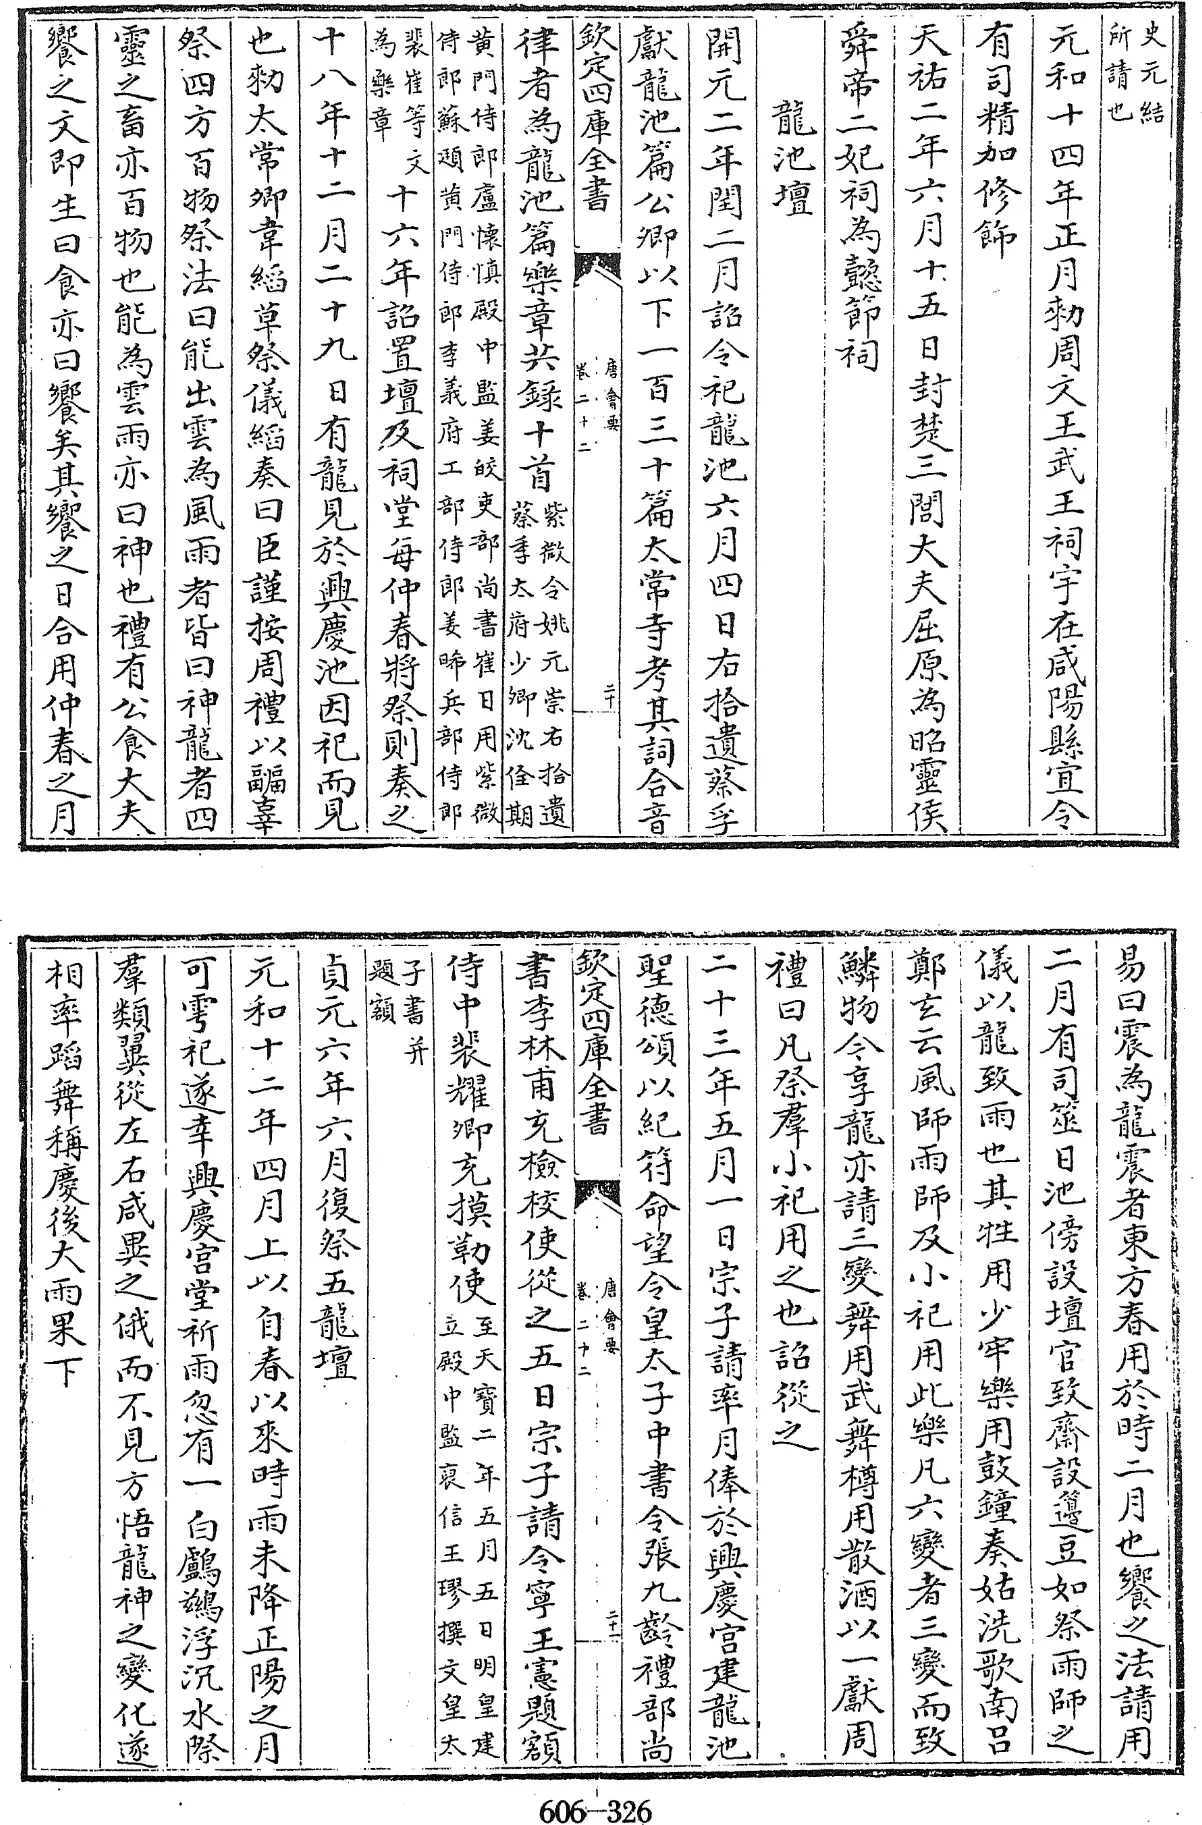 史元結
所請也
元和十四年正月勑周文王武王祠宇在咸陽縣宜令
有司精加修飾
天祐二年六月十五日封楚三閭大夫屈原為昭靈侯
舜帝二妃祠為懿節祠
龍池壇
開元二年閏二月詔令祀龍池六月四日右拾遺蔡孚
獻龍池篇公卿以下一百三十篇太常寺考其詞合音
欽定四庫全書
唐會要
卷二十二
二十
律者為龍池篇樂章共錄十首
紫微令姚元崇右拾遺
蔡孚太府少卿沈佺期
黃門侍郎盧懷慎殿中監姜皎吏部尚書崔日用紫微
侍郎蘇頲黃門侍郎李義府工部侍郎姜晞兵部侍郎
裴崔等文
為樂章
十六年詔置壇及祠堂每仲春將祭則奏之
十八年十二月二十九日有龍見於興慶池因祀而見
也勑太常卿韋縚草祭儀縚奏曰臣謹按周禮以疈辜
祭四方百物祭法曰能出雲為風雨者皆曰神龍者四
靈之畜亦百物也能為雲雨亦曰神也禮有公食大夫
饗之文即生曰食亦曰饗矣其饗之日合用仲春之月
易曰震為龍震者東方春用於時二月也饗之法請用
二月有司筮日池傍設壇官致齋設籩豆如祭雨師之
儀以龍致雨也其牲用少牢樂用鼓鐘奏姑洗歌南呂
鄭玄云風師雨師及小祀用此樂凡六變者三變而致
鱗物今享龍亦請三變舞用武舞樽用散酒以一獻周
禮曰凡祭羣小祀用之也詔從之
二十三年五月一日宗子請率月俸於興慶宮建龍池
聖德頌以紀符命望令皇太子中書令張九齡禮部尚
欽定四庫全書
唐會要
卷二十二
二十一
書李林甫充檢校使從之五日宗子請令寧王憲題額
侍中裴耀卿充摸勒使
至天寶二年五月五日明皇建
立殿中監裒信王璆撰文皇太
子書并
題額
貞元六年六月復祭五龍壇
元和十二年四月上以自春以來時雨未降正陽之月
可雩祀遂幸興慶宮堂祈雨忽有一白鸕鷀浮沉水際
羣類翼從左右咸異之俄而不見方悟龍神之變化遂
相率蹈舞稱慶後大雨果下
606-326